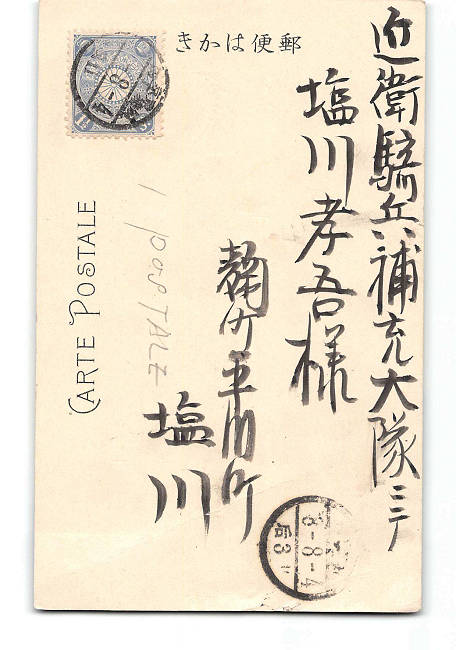 郵便はかき
近衛騎兵補充大隊ミテ
塩川孝吾様
麹町平河町
塩川
CARTE POSTALE
1 posTALE
8-8-4
后3